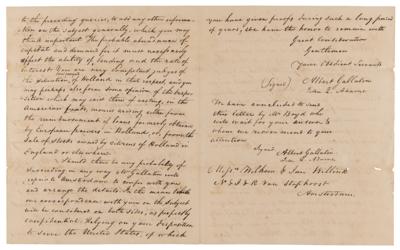 to the preceding queries, to add any other informa-
tion on the subject generally, which you may
think important. The probable abundance of
capital and demand for it must necessarily
affect the ability of lending and the rate of
interest. You are very competent judges of
the situation of Holland in that respect and you
may perhaps also form some opinion of the dispo-
sition which may exist there of vesting, in the
American funds, monies arising either from
the reimbursement of loans formerly obtained
by European powers in Holland, or, from the
sale of Stocks owned by citizens of Holland in
England or elsewhere.
Should there be any probability of
succeeding in any way Mr Gallatin will
repair to Amsterdam to confer with you
and arrange the details. In the mean while
our correspondence with you on the subject
will be considered on both sides, as perfectly
confidential. Relying on your disposition
to serve the United States, of which
you have given proofs during such a long period
of years, we have the honor to remain with
Great Consideration
Gentlemen
Your Obedient Servants
(Signed) Albert Gallatin
We have concluded to send
this letter by Mr Boyd who
will wait for your answer &
whom we recommend to your
attention
Signed
Albert Gallatin
Messrs Wilhem & Jan Willink
N. & J. & R. Van Staphorst
Amsterdam.